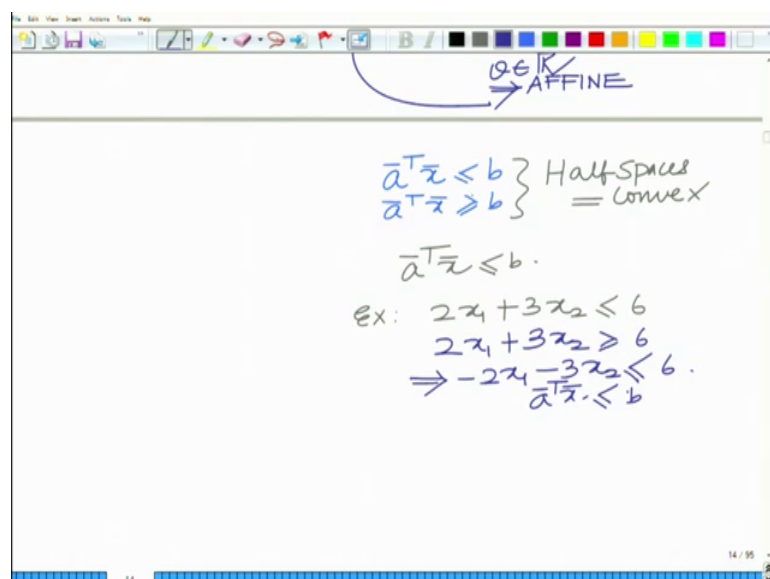 File Edit View Insert Actions Tools Help
B I
θ ∈ ℝ
⇒ AFFINE
āᵀx̄ ≤ b } Half Spaces
āᵀx̄ ≥ b } = Convex
āᵀx̄ ≤ b.
Ex: 2x₁ + 3x₂ ≤ 6
2x₁ + 3x₂ ≥ 6
⇒ -2x₁ - 3x₂ ≤ 6.
āᵀx̄ ≤ b
14 / 95